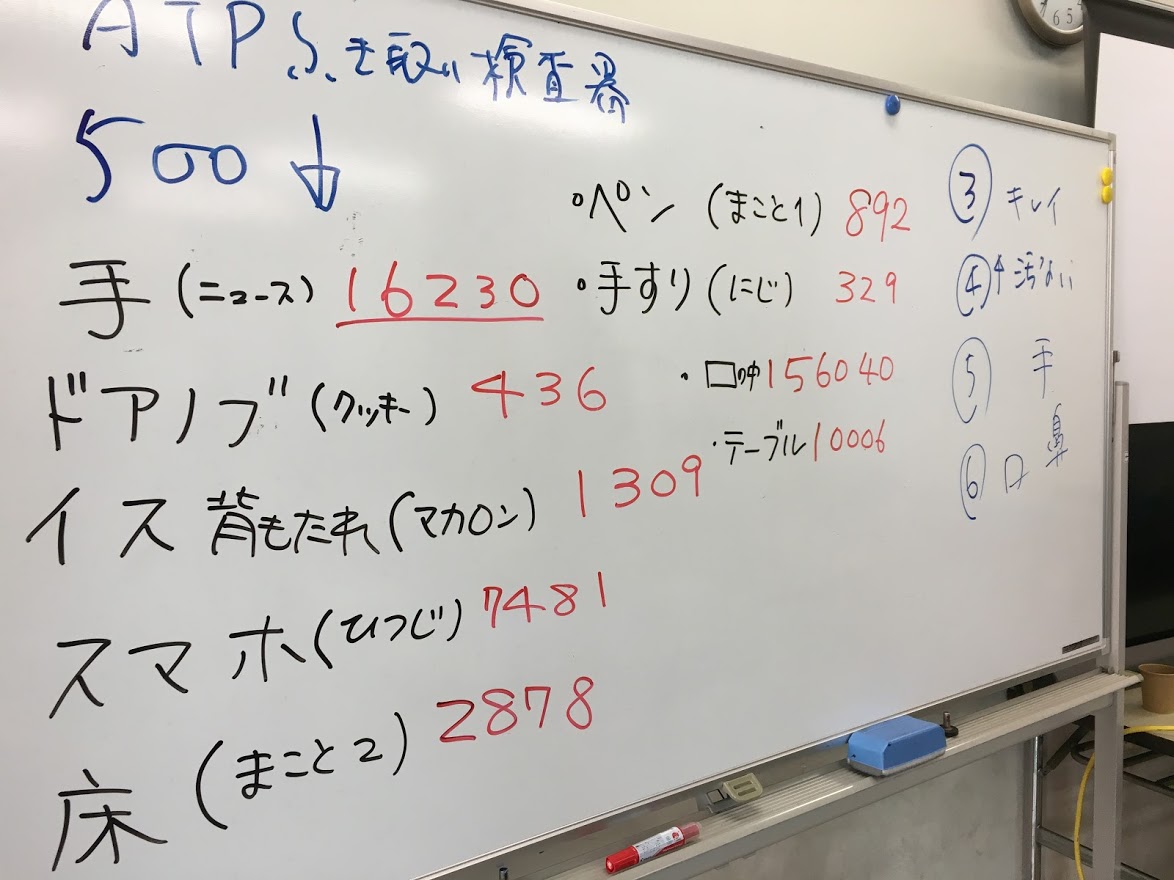 ATPふき取り検査器
500↓
手(ニュース) 16230
ドアノブ(クッキー) 436
イス 背もたれ(マカロン) 1309
スマホ(ひつじ) 7481
床(まこと2) 2878
・ペン(まこと1) 892
・手すり(にじ) 329
・口の中 156040
・テーブル 10006
③ キレイ
④↑汚ない
⑤ 手
⑥ 口 鼻
6 5